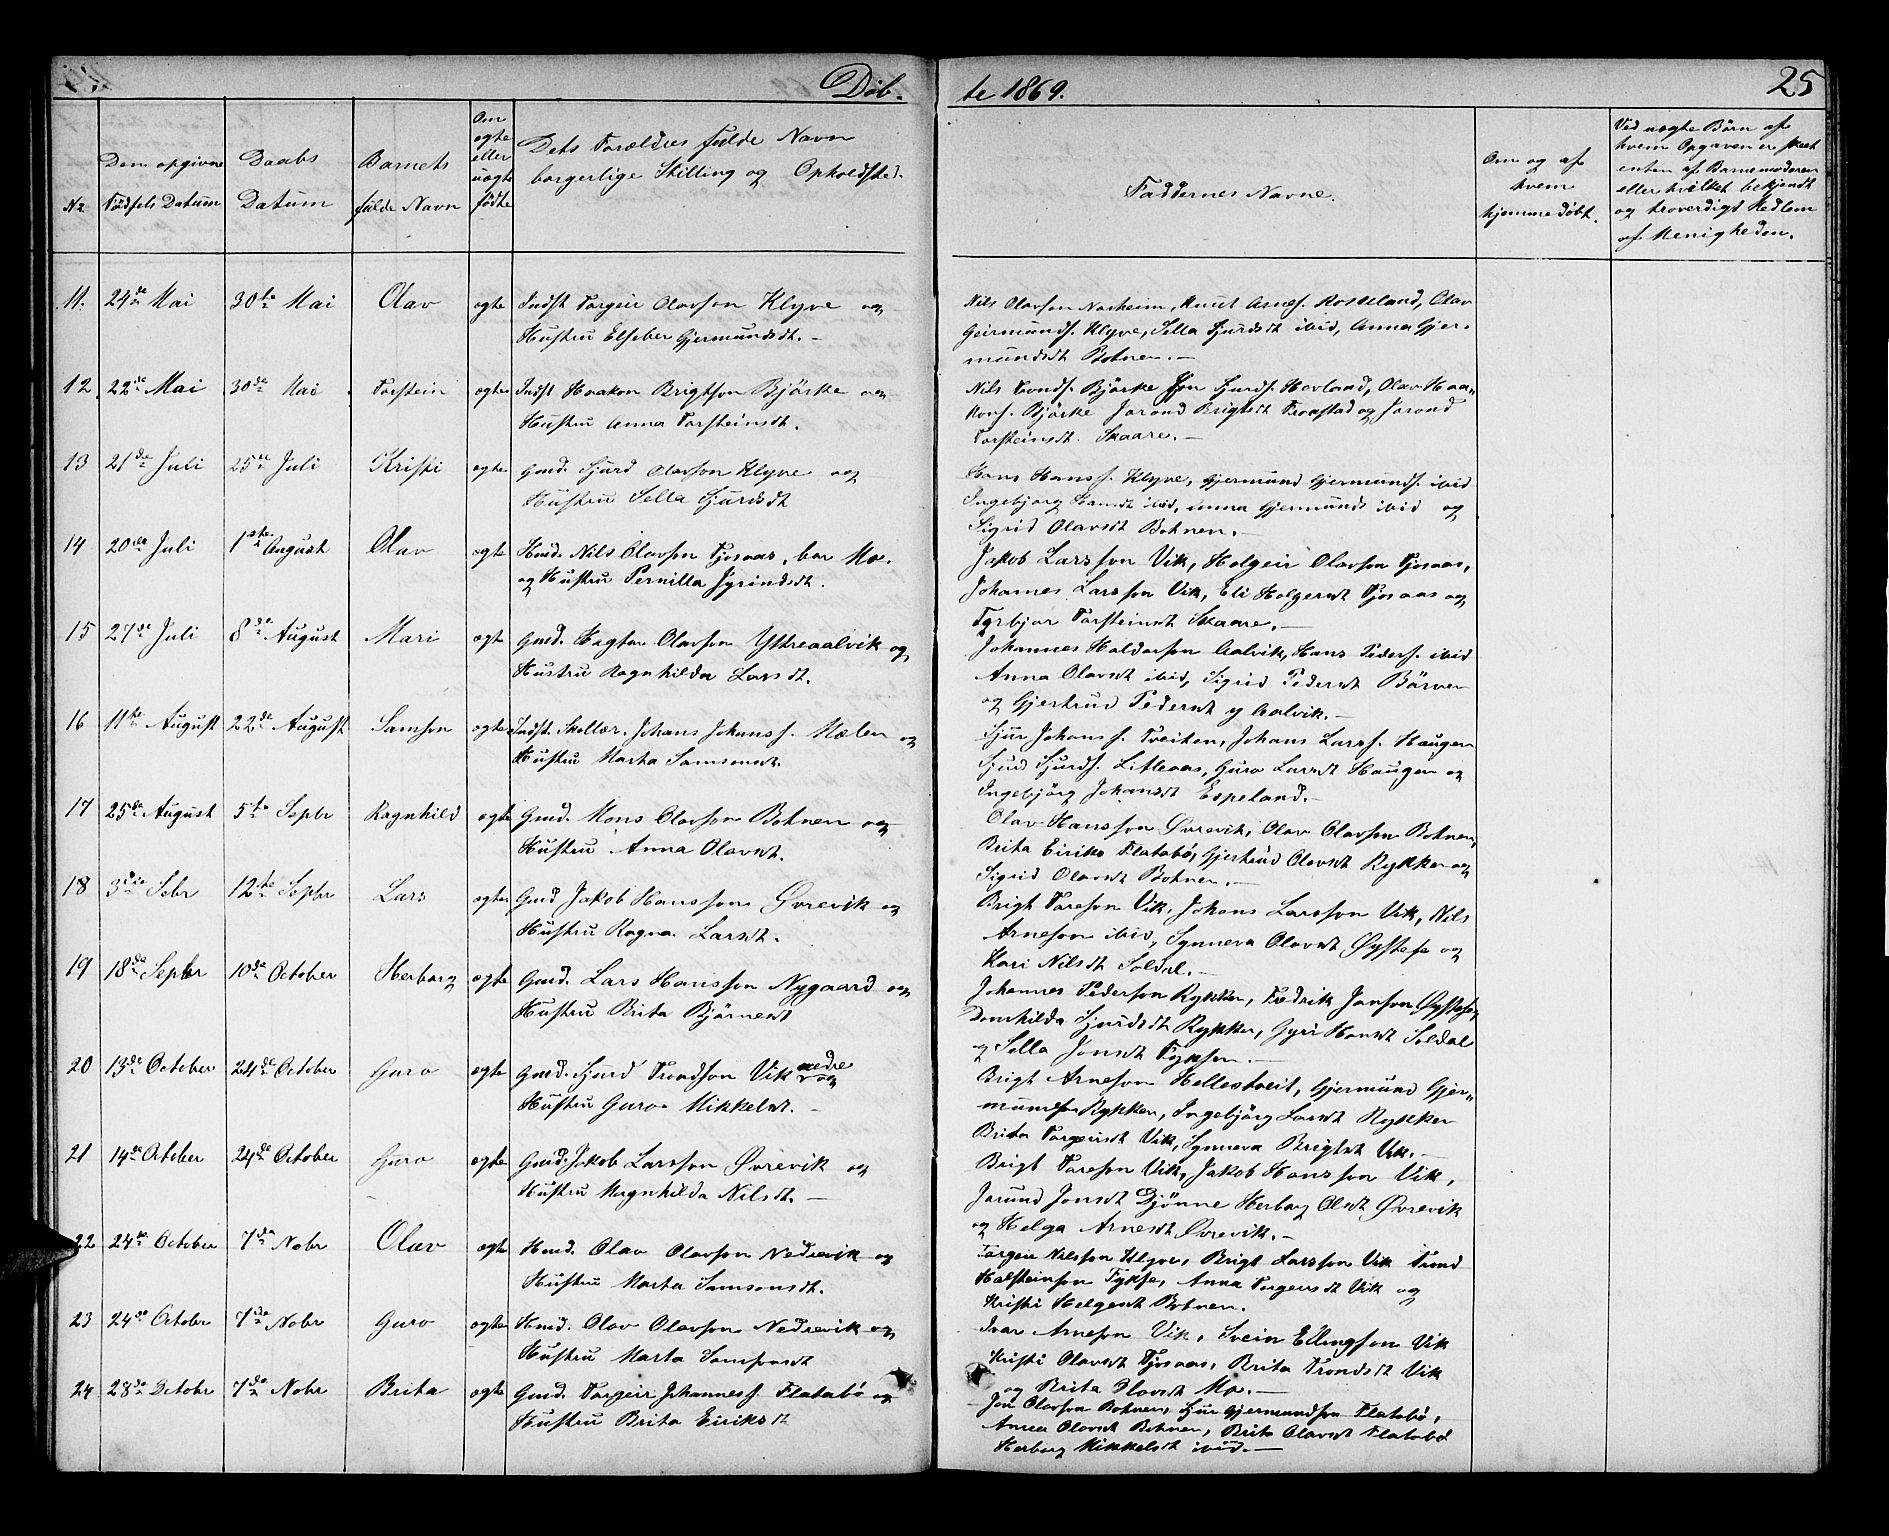 Döb-
te 1869.
25
No
Den opgivne
Födsels Datum
Daabs
Datum
Barnets
fulde Navn
Om
ægte
eller
uægte
födte
Dets Forældres fulde Navn
borgerlige Stilling og Opholdsted.
Faddernes Navne.
Om og af
hvem
hjemmedöbt.
Ved uægte Börn af
hvem Opgaven er skeet
enten af Barnemoderen
eller hvilket bekjendt
og troverdigt Medlem
af Menigheden.
11. 24de Mai 30te Mai Olav ægte Indst Torgeir Olavson Klyve og
Hustru Elseber Gjermundsdt. –
Nils Olavson Norheim, Knut Arnes. Rosseland, Olav
Geirmunds. Klyve, Sella Sjursdt ibid, Anna Gjer-
mundsdt Botnen. –
12 22de Mai 30de Mai Torstein ægte Indst Haakon Brigtson Björke og
Hustru Anna Torsteinsdt.
Nils Tronds. Björke Jon Sjurds. Hovland, Olav Haa-
kons. Björke Jorond Brigtsdt Tronstad og Jorond
Torsteinsdt. Skaare. –
13 21de Juli 25de Juli Kristi ægte Gmd. Sjurd Olavson Klyve og
Hustru Sella Sjurdsdt
Hans Hanss. Klyve, Gjermund Gjermunds. ibid
Ingebjorg Hansdt ibid, Anna Gjermunds ibid og
Sigrid Olavsdt Botnen. –
14 20de Juli 1ste August Olav ægte Hmd. Nils Olavson Tjosaas, bor Mo.
og Hustru Pernilla Jyrindsdt.
Jakob Larsson Vik, Holgeir Olavson Tjosaas,
Johannes Larsson Vik, Eli Holgersdt Tjosaas og
Tyrbjor Torsteinsdt Skaare. –
15 27de Juli 8de August Mari ægte Gmd. Hagtor Olavson Ytreaalvik og
Hustru Ragnhilda Larsdt.
Johannes Haldorson Aalvik, Hans Peders. ibid
Anna Olavsdt ibid, Sigrid Pedersdt Börven
og Gjertrud Pedersdt y Aalvik. –
16 11te August 22de August Samson ægte Indst. Skollær. Johans Johanss. Mælen og
Hustru Marta Samsonsdt.
Sjur Johanss. Tveiten, Johans Larss. Haugen
Sjurd Sjurds. Litleaas, Guro Larsdt Haugen og
Ingebjörg Johansdt Espeland. –
17 25de August 5te Sepbr Ragnhild ægte Gmd. Mons Olavson Botnen og
Hustru Anna Olavsdt.
Olav Hansson Övrevik, Olav Olavson Botnen,
Brita Eiriks Flatabö, Gjertrud Olavsdt Rykken og
Sigrid Olavsdt Botnen. –
18 3die Sebr 12te Sepbr Lars ægte Gmd Jakob Hansson Övrevik og
Hustru Ragna Larsdt.
Brigt Toreson Vik, Johans Larsson Vik, Nils
Arneson ibid, Synneva Olavsdt Öystese og
Kari Nilsdt Soldal. –
19 18de Sepbr 10de October Herborg ægte Gmd. Lars Hansson Nygaard og
Hustru Brita Björnesdt
Johannes Pederson Rykken, Fredrik Jonson Öystese,
Dornhilda Sjurdsdt Rykken, Gyri Hansdt Soldal
og Sella Jonsdt Fyksen. –
20 13de October 24de October Guro ægte Gmd. Sjurd Trondson Vik nedre og
Hustru Guro Mikkelsdt. –
Brigt Arneson Hellestveit, Gjermund Gjer-
mundson Rykken, Ingebjörg Larsdt Rykken
Brita Torgeirsdt Vik, Synneva Brigtsdt Vik. –
21 14de October 24de October Guro ægte Gmd. Jakob Larsson Övrevik og
Hustru Magnhilda Nilsdt. –
Brigt Toreson Vik, Jakob Hansson Vik,
Jorund Jonsdt Djönne Herborg Olsdt Övrevik
og Helga Arnesdt Övrevik. –
22 24de October 7de Nobr Olav ægte Hmd. Olav Olavson Nedrevik og
Hustru Marta Samsonsdt.
Torgeir Nilsson Klyve, Brigt Larsson Vik Trond
Halsteinson Fykse, Anna Torgeirsdt Vik og
Kristi Helgesdt Botnen.
23 24de October 7de Nobr Guro ægte Hmd. Olav Olavson Nedrevik og
Hustru Marta Samsonsdt
Ivar Arneson Vik, Svein Ellingson Vik
Kristi Olavsdt Tjosaas, Brita Trondsdt Vik
og Brita Olavsdt Mo. –
24 28de Octobr 7de Nobr Brita ægte Gmd. Torgeir Johanness. Flatabö og
Hustru Brita Eiriksdt
Jon Olavson Botnen, Sjur Gjermundson Flatabö,
Anna Olavsdt Botnen, Brita Olavsdt Flatabö
Herborg Mikkelsdt ibid. –